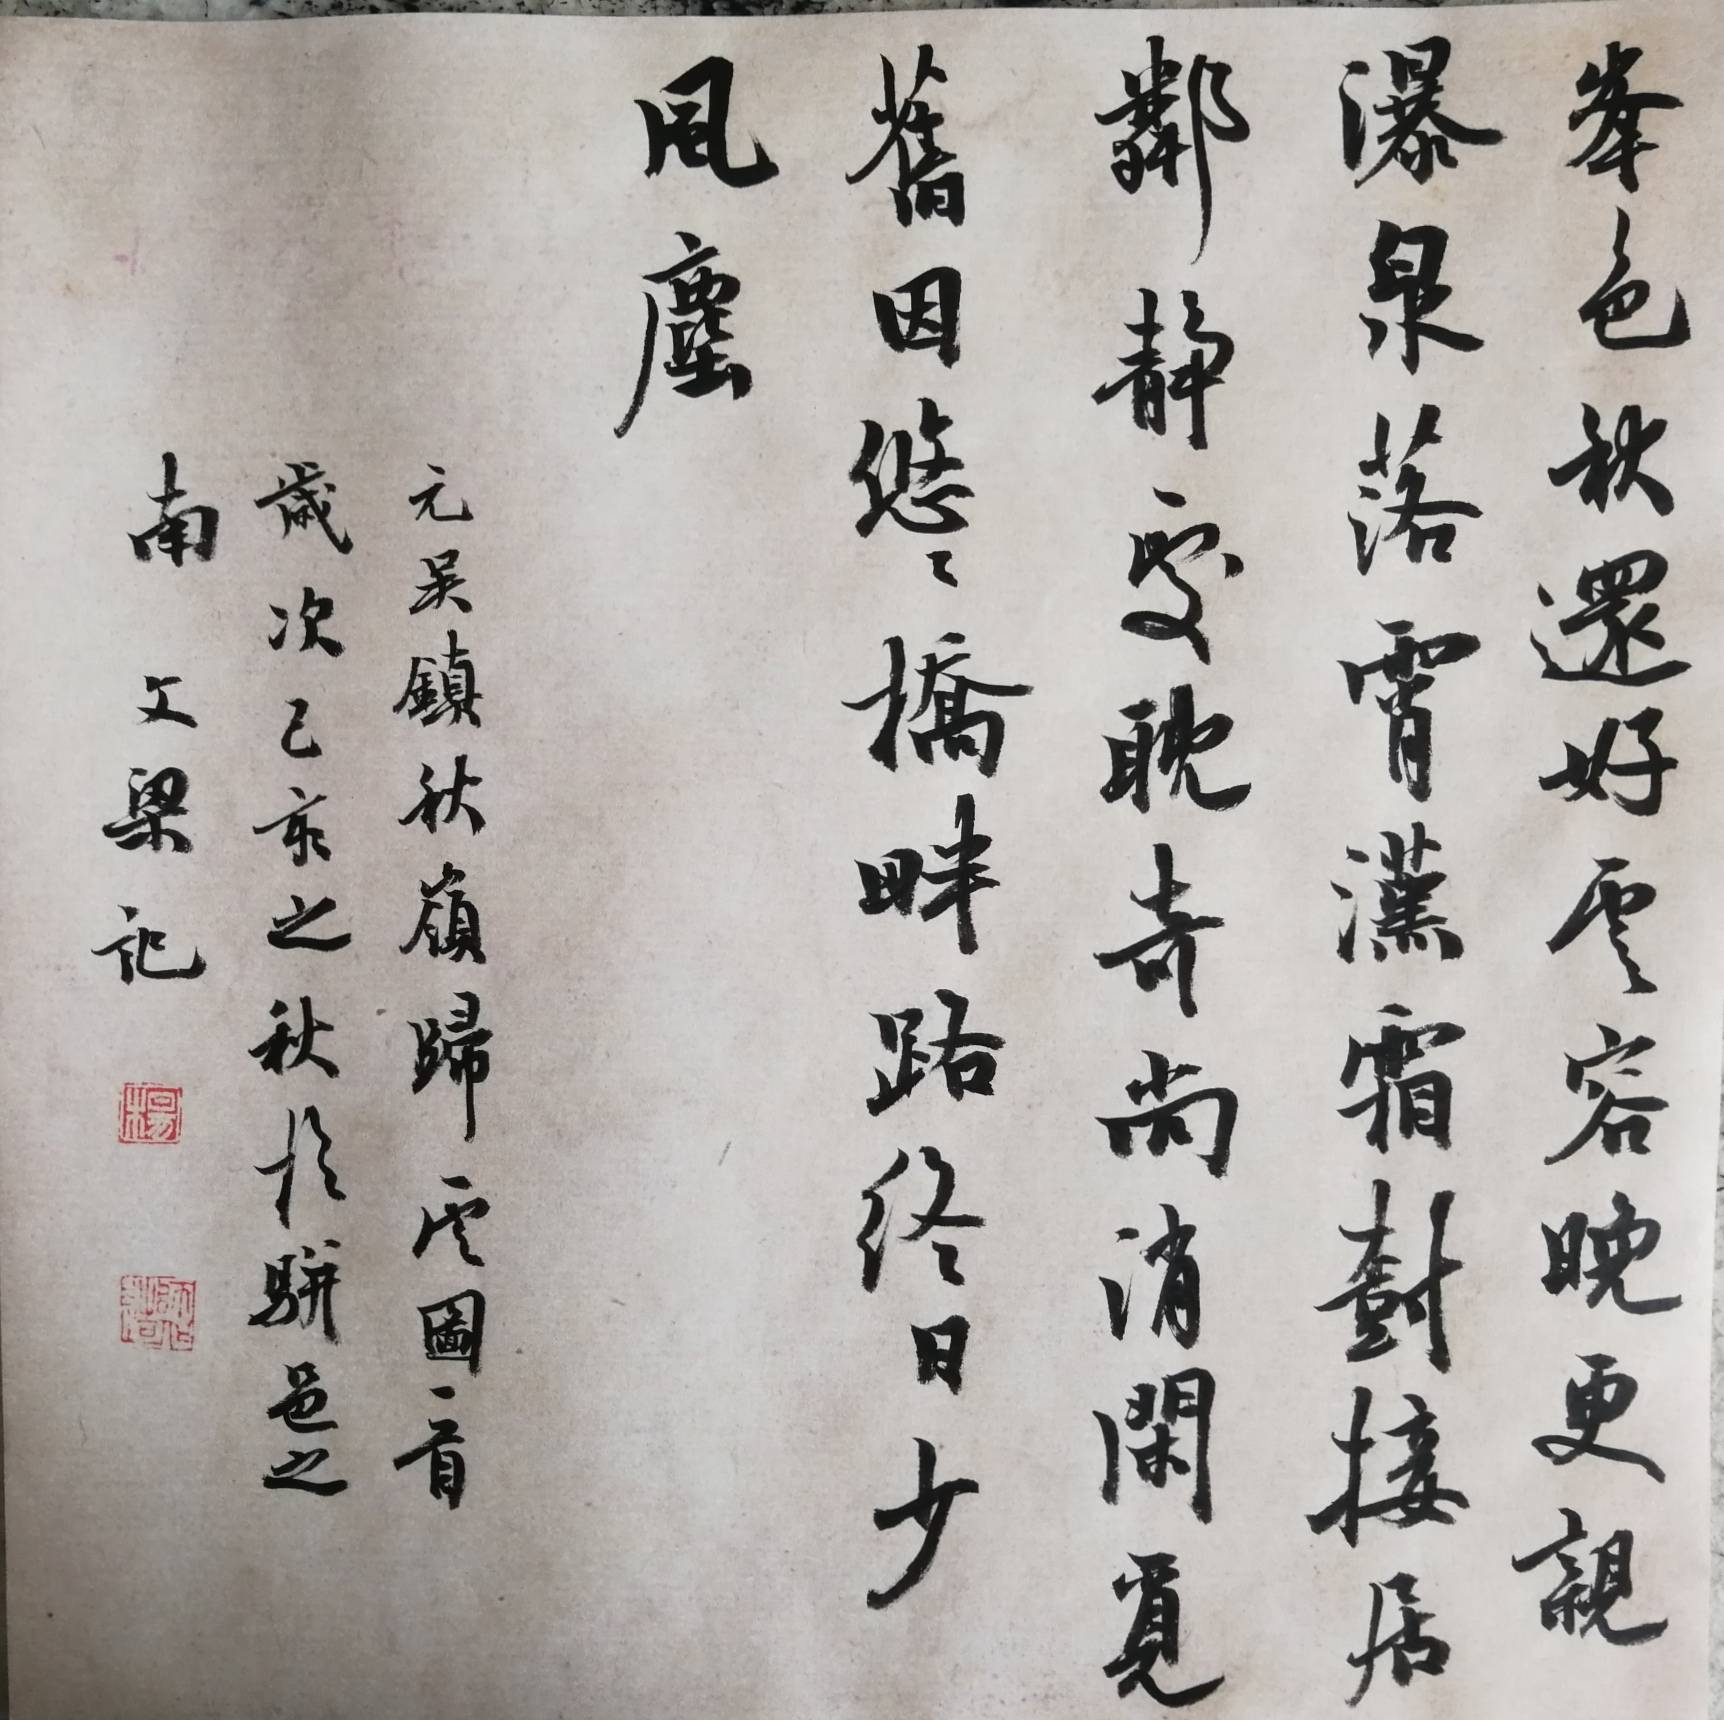 峯色秋還好雲容晚更親
瀑泉落霄漢霜樹接居
鄰靜處耽奇尚消閑覓
舊因悠〻橋畔路終日少
風塵
元吳鎮秋嶺歸雲圖一首
歲次己亥之秋於駢邑之
南 文梁記
楊